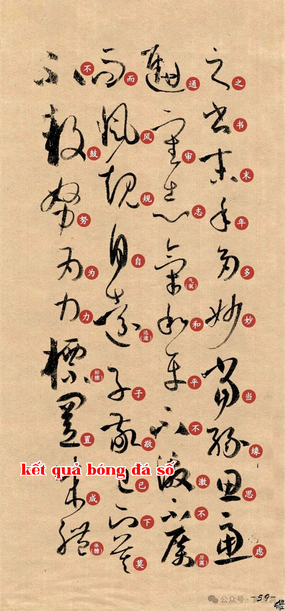 之书末年多妙当缘思虑
通审志气和平不激不厉
而风规自远子敬已下莫
不鼓努为力标置成体
kết quả bóng đá số
公众号
-59-